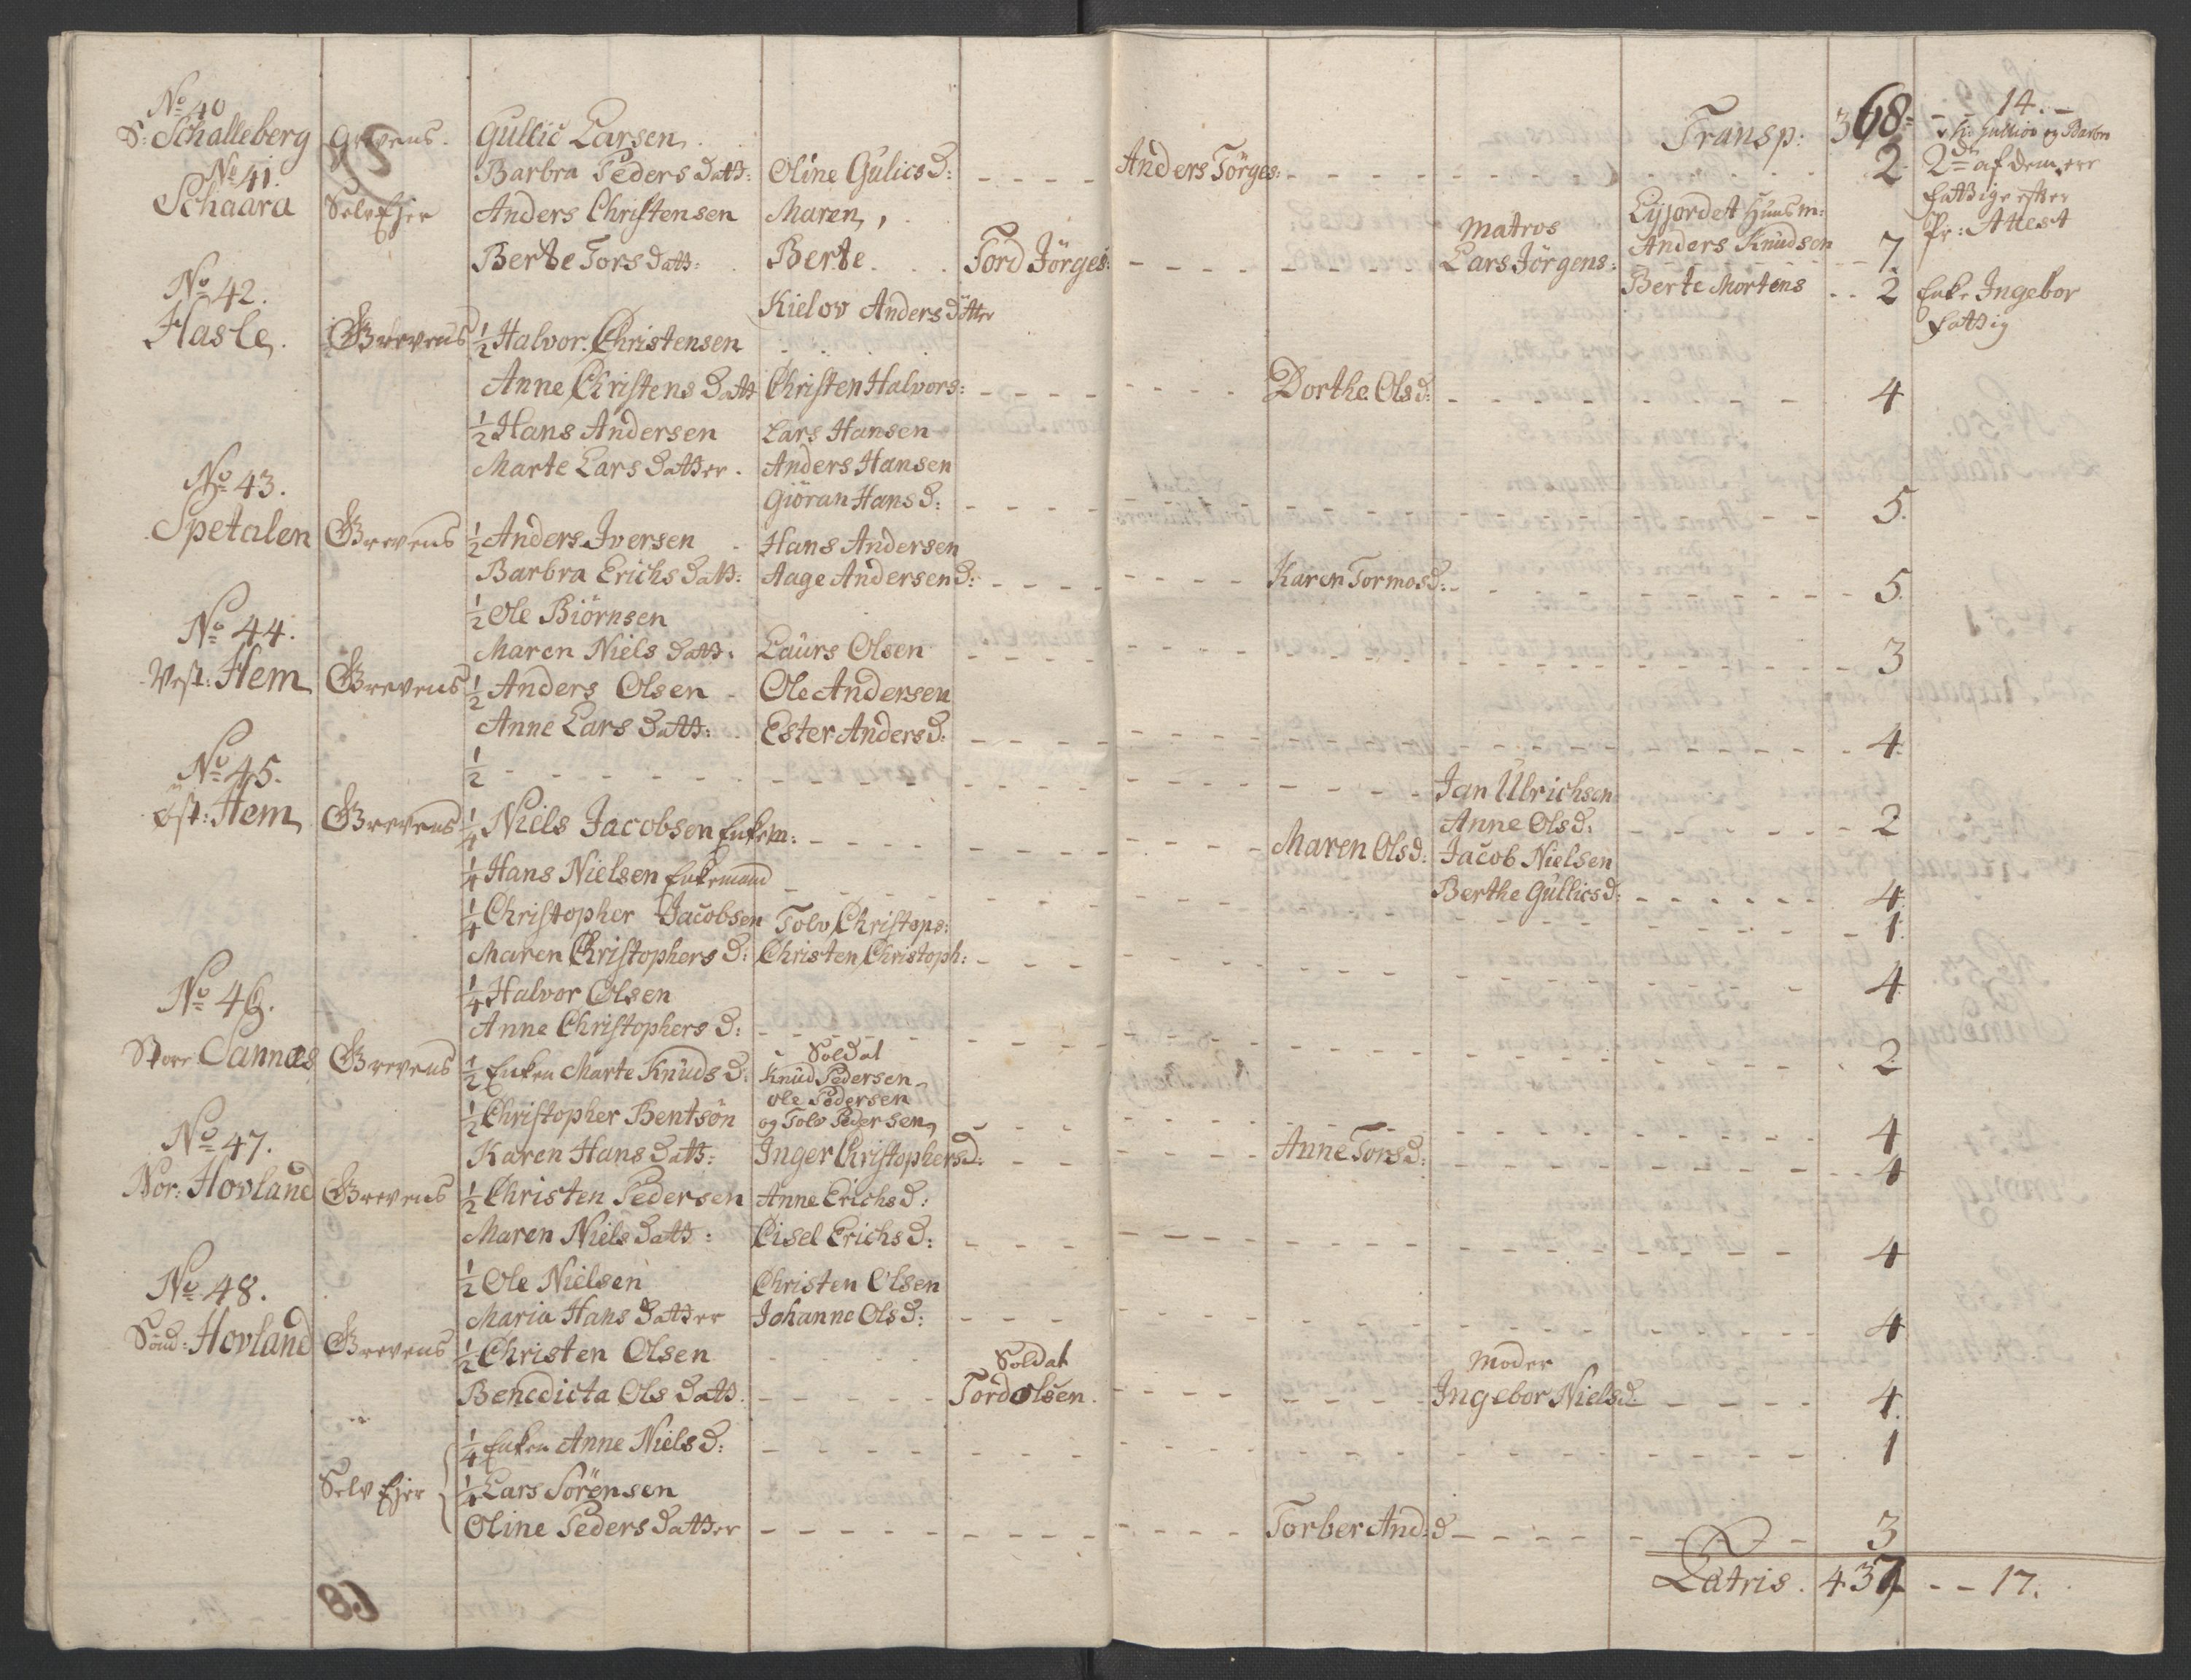 Transp: 368 14. –
No 40
S: Schalleberg Grevens. Gullic Larsen
Barbra Peders Datt: Oline Gulicsd: Anders Törges: 2 2de af dem ere
Fattige efter
Pr: Attest
No 41.
Schaara Selv Ejer Anders Christensen Maren,
Matros Eyjordet Huusm:
Berte Tors Datt: Berte Tord Jörges: Lars Jörgens: Anders Knudsen 7
Kielov Anders Datter Berte Mortens 2 Enke Ingebor
Fattig
No 42.
Hasle. Grevens ½ Halvor Christensen
Anne Christens Datt Christen Halvors: Dorthe Olsd: 4
½ Hans Andersen Lars Hansen
Marte Lars Datter. Anders Hansen
Giöran Hansd: 5.
No 43.
Spetalen Grevens ½ Anders Iversen Hans Andersen
Barbra Erichs Datt: Aage Andersend: Karen Tormosd: 5.
½ Ole Biörnsen
Maren Niels Datt. Laurs Olsen 3
No 44.
Vest: Hem Grevens ½ Anders Olsen Ole Andersen
Anne Lars Datt: Ester Andersd: 4.
½ Jan Ulrichsen
Anne Olsd: 2
No 45.
Öst: Hem Grevens ¼ Niels Jacobsen Enkem: Maren Olsd: Jacob Nielsen
Berthe Gullicsd: 4.
¼ Hans Nielsen Enkemand 1.
¼ Christopher Jacobsen Tolv Christops:
Maren Christophers D: Christen Christoph: 4.
¼ Halvor Olsen
Anne Christophers D: 2
No 46.
Store Sannæs Grevens ½ Enken Marte Knuds D: Soldat
Knud Pedersen
Ole Pedersen
og Tolv Pedersen, 4
½ Christopher Bentsøn
Karen Hans Datt: Inger Christophersd: Anne Torsd: 4
No 47.
Nor: Hovland Grevens ½ Christen Pedersen Anne Erichsd:
Maren Niels Datt: Cisel Erichsd: 4
½ Ole Nielsen Christen Olsen
Maria Hans Datter Johanne Olsd: 4
No 48.
Sönd: Hovland Grevens ½ Christen Olsen Soldat Moder
Benedicta Ols Datt. Tord Olsen. Ingebor Nielsd: 4.
¼ Enken Anne Niels D: 1
Selv Ejer ¼ Lars Sörensen
Oline Peders Datter Torber And: d 3
Latris. 437 – – 17.